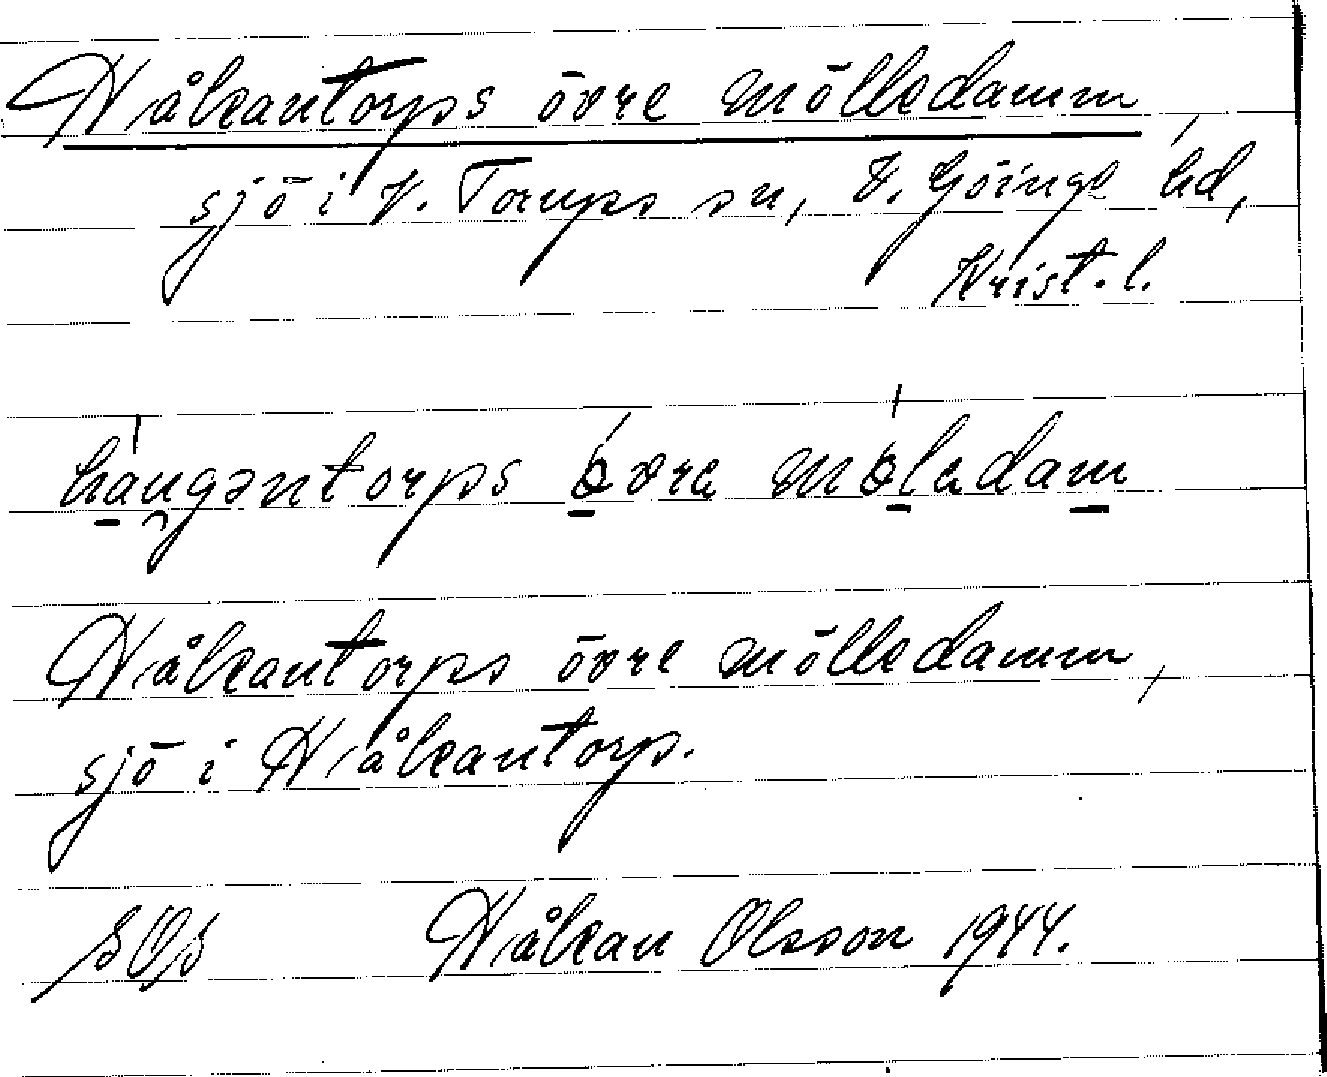 Håkantorps övre mölledamm
sjö i V. Torups sn, V. Göinge hd,
Krist. l.
Håkantorps övre mölledamm,
sjö i Håkantorp.
SOS Håkan Olsson 1944.